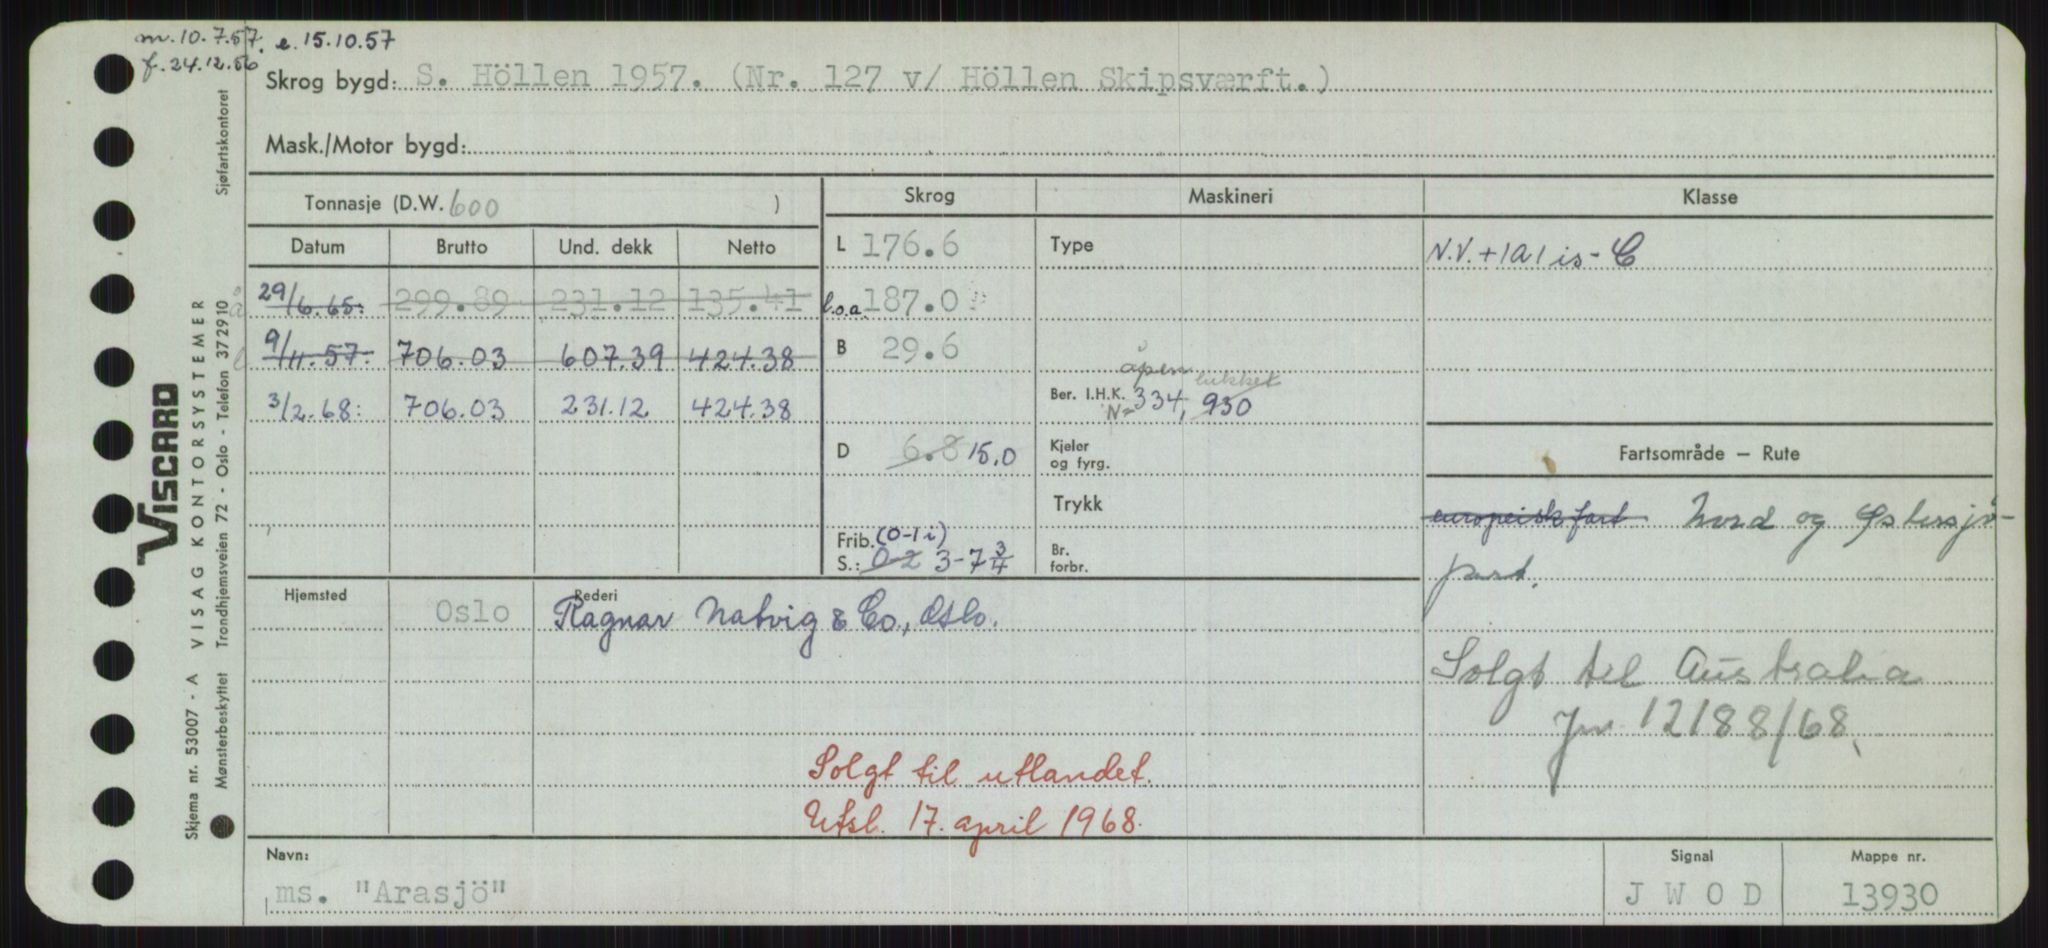 m. 10.7.57. e. 15.10.57
f. 24.12.56
Skrog bygd: S. Höllen 1957. (Nr. 127 v/ Höllen Skipsværft.)
Mask./Motor bygd:
Tonnasje (D.W. 600 )
Skrog Maskineri Klasse
Datum Brutto Und. dekk Netto
L 176.6 Type N.V. +1A1 is-C
å 29/6.65: 299.89 231.12 135.41
l.o.a. 187.0
l 9/11.57: 706.03 607.39 424.38
B 29.6
3/2.68: 706.03 231.12 424.38
åpen lukket
Ber. I.H.K. N= 334, 930
D 6.8 15.0
Kjeler
og fyrg.
Fartsområde – Rute
Trykk
europeisk fart Nord og Østersjö-
fart.
Frib. (0-1 i)
S.: 0-2 3-7 3/4
Br.
forbr.
Hjemsted Oslo
Rederi
Ragnar Natvig & Co., Oslo.
Solgt til Australia
Jnr 12188/68.
Solgt til utlandet.
Utsl. 17. april 1968.
Navn: ms. "Arasjö"
Signal J W O D
Mappe nr. 13930
VISCARD
Skjema nr. 53007 - A VISAG KONTORSYSTEMER
Mønsterbeskyttet Trondhjemsveien 72 - Oslo - Telefon 372910 Sjøfartskontoret